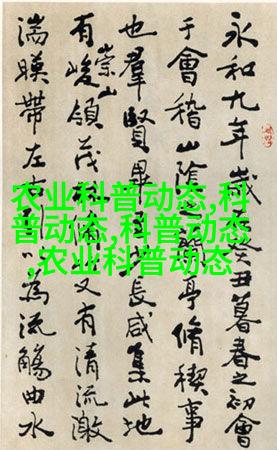 永和九年歲癸丑暮春之初會
于會稽山陰之亭脩稧事
也羣賢畢長咸集此地
有崇山峻領茂又有清流激
湍暎帶左為流觴曲水
农业科普动态,科
普动态,科普动态
,农业科普动态